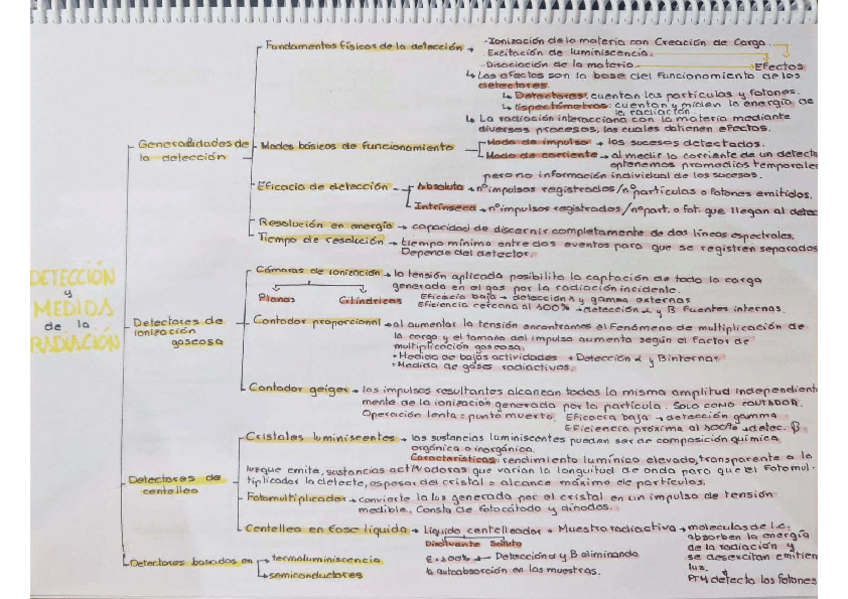 DETECCIÓN
y
MEDIDAS
de la
RADIACIÓN
Generalidades de
la detección
Fundamentos físicos de la detección →
-Ionización de la materia con Creación de Carga.
Excitación de luminiscencia.
Disociación de la materia → Efectos
↳ Los efectos son la base del funcionamiento de los
detectores.
↳ Detectores: cuentan las partículas y fotones.
↳ Espectómetros: cuentan y miden la energía de
la radiación.
↳ La radiación interacciona con la materia mediante
diversos procesos, los cuales obtienen efectos.
Modos básicos de funcionamiento
Modo de impulso → los sucesos detectados.
Modo de corriente → al medir la corriente de un detect
obtenemos promedios temporales
pero no información individual de los sucesos.
Eficacia de detección
Absoluta → nº impulsos registrados/nº partículas o fotones emitidos.
Intrínseca → nº impulsos registrados/nº part. o fot. que llegan al detec
Resolución en energía → capacidad de discernir completamente de dos líneas espectrales.
Tiempo de resolución → tiempo mínimo entre dos eventos para que se registren separados
Depende del detector.
Detectores de
ionización
gaseosa
Cámaras de ionización → la tensión aplicada posibilita la captación de toda la carga
generada en el gas por la radiación incidente.
Planas Cilíndricas
Eficacia baja → detección x y gamma externas
Eficiencia cercana al 100% → detección α y B fuentes internas.
Contador proporcional → al aumentar la tensión encontramos el Fenómeno de multiplicación de
la carga y el tamaño del impulso aumenta según el factor de
multiplicación gaseosa.
• Medida de bajas actividades • Detección α y B internas
• Medida de gases radiactivos.
Contador geiger → los impulsos resultantes alcanzan todos la misma amplitud independient
mente de la ionización generada por la partícula. SOLO COMO CONTADOR.
Operación lenta = punto muerto. Eficacia baja → detección gamma
Eficiencia próxima al 100% → detec. β
Detectores de
centelleo
Cristales luminiscentes → las sustancias luminiscentes pueden ser de composición química
orgánica o inorgánica.
Características: rendimiento lumínico elevado, transparente a la
luz que emite, sustancias activadoras que varían la longuitud de onda para que el Fotomul-
tiplicador la detecte, espesor del cristal = alcance máximo de partículas.
Fotomultiplicador → convierte la luz generada por el cristal en un impulso de tensión
medible. Consta de Fotocátodo y dínodos.
Centelleo en Fase líquida → Líquido centelleador + Muestra radiactiva → moleculas de l.c.
absorben la energía
de la radiación y
se desexcitan emitien
luz.
PTM detecta los fotones
Disolvente Soluto
E ≈ 100% → Detección α y B eliminando
la autoabsorción en las muestras.
Detectores basados en
→ termoluminiscencia
→ semiconductores